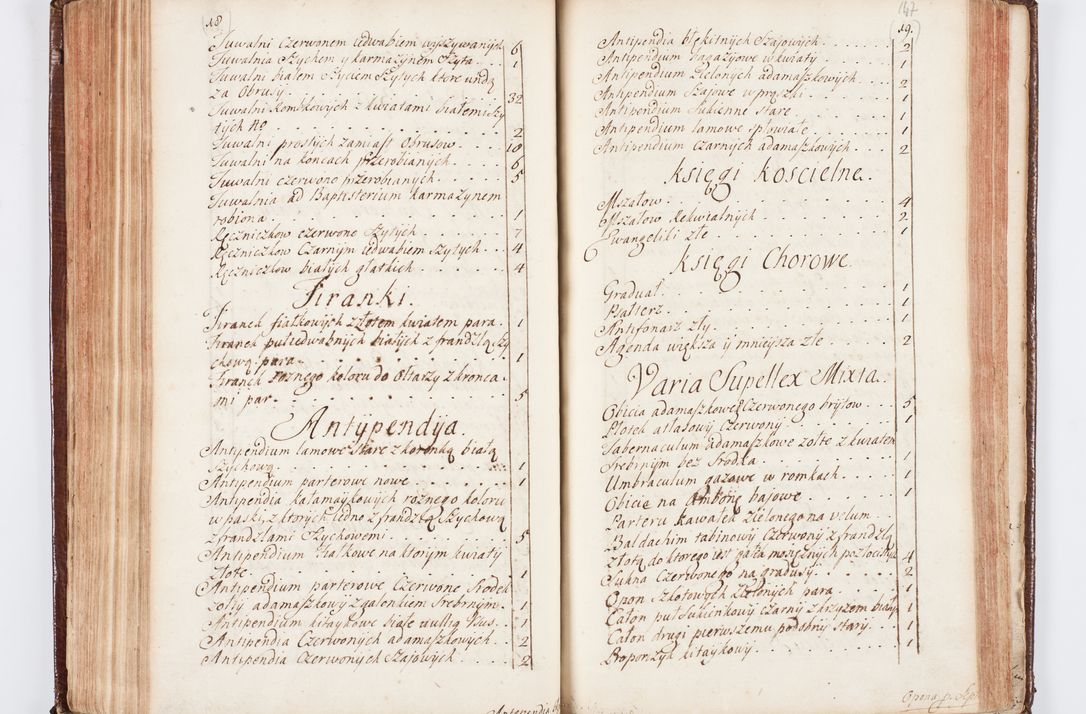 18
Tuwalni Czerwonem Iedwabiem wyszywanych 6
Tuwalnia Szychem y karmazynem Szyta . 1
Tuwalni białem Szyciem Szytych ktore undą
za Obrusy . 32
Tuwalni Komskowych z kwiatami białemi
tych 40 . 2
Tuwalni prostych zamiast Obrusow . 10
Tuwalni na koncach przerobianych . 6
Tuwalni czerwono przerobianych . 5
Tuwalnia ad Baptisterium karmazynem
robiona . 1
Ręczniczkow czerwono Szytych . 7
Ręczniczkow Czarnym Iedwabiem Szytych . 4
Ręczniczkow białych głatkich . 4
Firanki.
Firanek fiałkowych z złotem kwiatem para . 1
Firanek pułiedwabnych białych z frandzlą Szy
chową para . 1
Firanek roznego koloru do Ołtarzy z koronca
mi par . 5
Antypendya.
Antipendium lamowe Stare z koronką białą
Szychową . 1
Antipendium parterowe nowe . 1
Antipendia kałamaykowych roznego koloru
w paski, z ktorych Iedno z frandzlą Szychową
z frandzlami Szychowemi . 5
Antipendium fiałkowe na ktorym kwiaty
złote . 1
Antipendium parterowe Czerwone Srodek
zołty adamaszkowy z galonkiem Srebrnym . 1
Antipendium kitaykowe białe wullig Vzus . 1
Antipendia Czerwonych adamaszkowych . 2
Antipendia Czerwonych Szajowych . 2
Antependia
147
19.
Antipendia błękitnych Szajowych . 2
Antipendium bagazyowe w kwiaty . 1
Antipendium Zielonych adamaszkowych . 2
Antipendium Szajowe w prązki . 1
Antipendium Sukienne Stare . 1
Antipendium lamowe spłowiałe . 1
Antipendium Czarnych adamaszkowych . 2
Księgi Koscielne.
Mszałow . 4
Mszałow Rekwialnych . 2
Ewangeliki złe . 1
Księgi Chorowe.
Graduał . 1
Psałterz . 1
Antifonarz zły . 1
Agenda większa y mnieysza złe . 2
Varia Supellex Mixta.
Obicia adamaszkowe Czerwonego brytow . 5
Płotek atłasowy Czerwony . 1
Tabernaculum adamaszkowe zołte z kwiatem
Srebrnym bez Srodka . 1
Umbraculum gazowe w romkach . 1
Obicie na Ambonę bajowe . 1
Parteru kawałek Zielonego na velum .
Baldachim tabinowy Czerwony z frandzlą
złotą do ktorego iest gałą mosięznych pozłocistych 4
Sukna Czerwonego na gradusy . 2
Opon Szkotowych Zielonych para . 1
Całon pułSukienkowy czarny z krzyzem biały 1
Całon drugi pierwszemu podobny stary . 1
Proporzyk kitaykowy . 1
Opona p. Sep